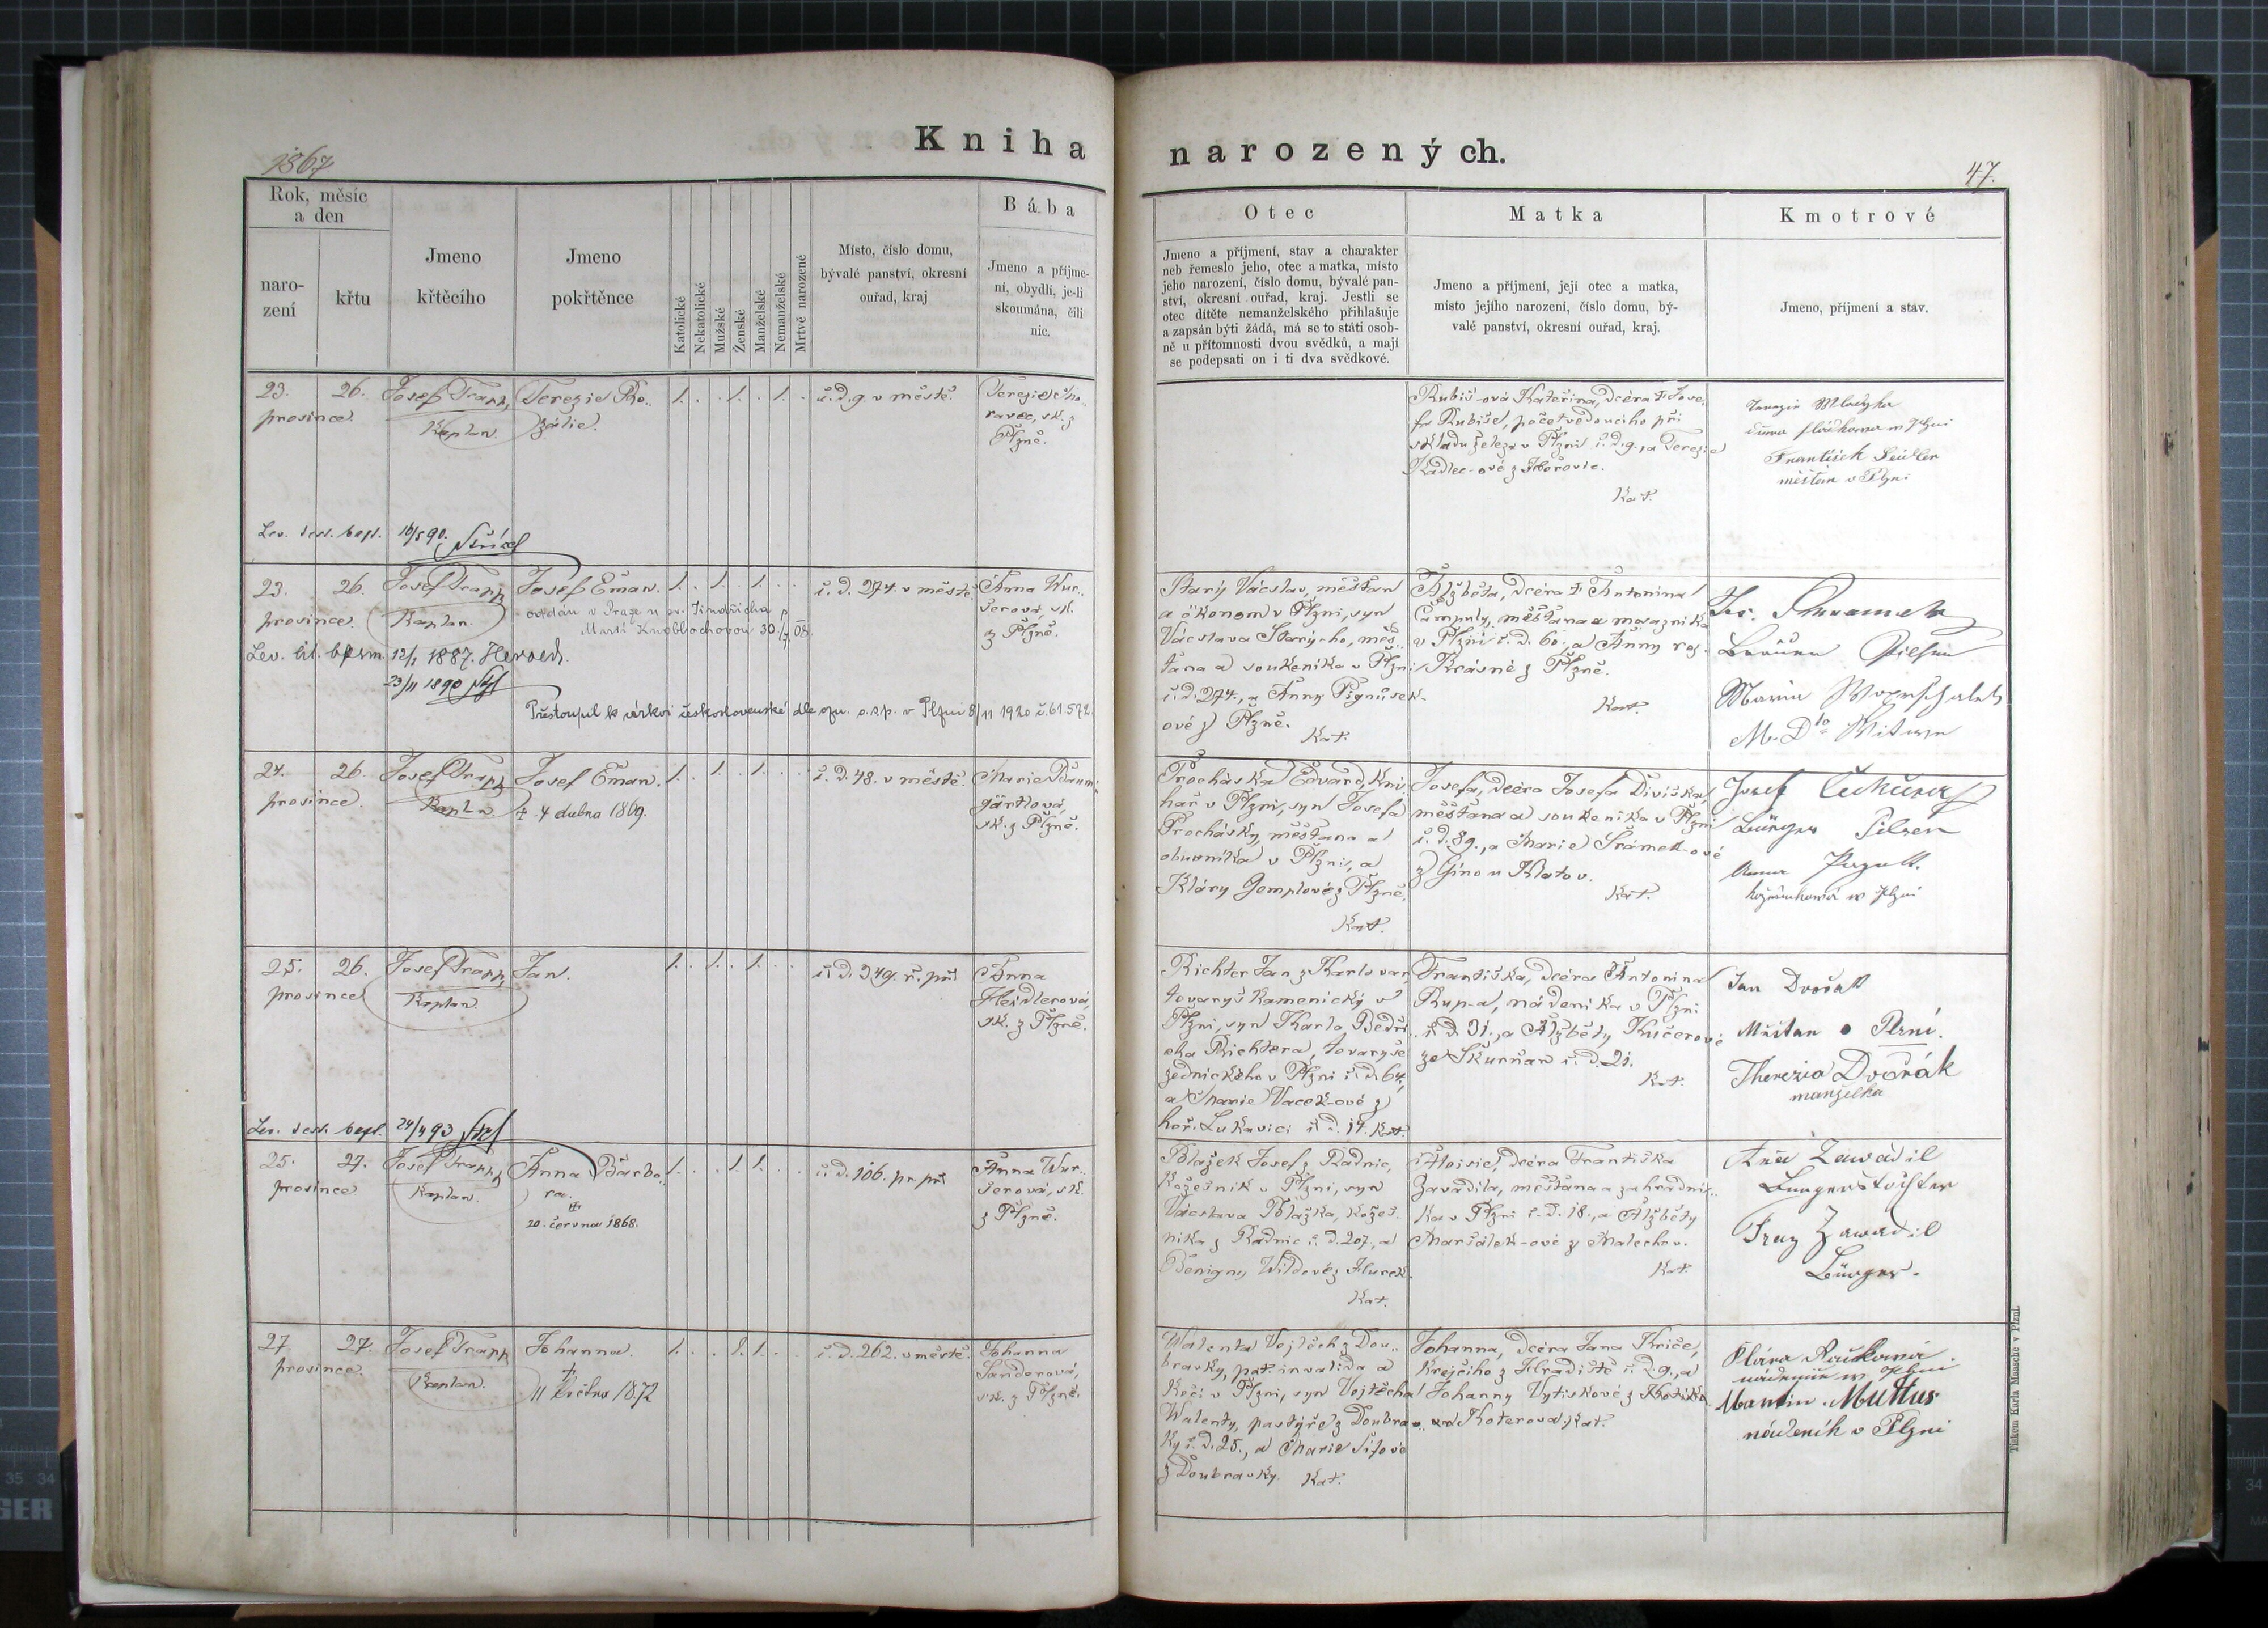 Kniha
narozených.
1867
47.
Rok, měsíc
a den
naro-
zení
křtu
Jmeno
křtěcího
Jmeno
pokřtěnce
Katolické
Nekatolické
Mužské
Ženské
Manželské
Nemanželské
Mrtvě narozené
Místo, číslo domu,
bývalé panství, okresní
ouřad, kraj
Bába
Jmeno a příjme-
ní, obydlí, je-li
skoumána, čili
nic.
Otec
Jmeno a příjmení, stav a charakter
neb řemeslo jeho, otec a matka, místo
jeho narození, číslo domu, bývalé pan-
ství, okresní ouřad, kraj. Jestli se
otec dítěte nemanželského přihlašuje
a zapsán býti žádá, má se to státi osob-
ně u přítomnosti dvou svědků, a mají
se podepsati on i ti dva svědkové.
Matka
Jmeno a příjmení, její otec a matka,
místo jejího narození, číslo domu, bý-
valé panství, okresní ouřad, kraj.
Kmotrové
Jmeno, příjmení a stav.
23. 26.
prosince.
Josef Trapp,
Kaplan.
Terezie Ro..
zálie.
1. . . 1. . 1. .
č. d. 9. v městě.
ravec, sk. z
Plzně.
Rubiš-ová Kateřina, dcéra † Jose-
fa Rubiše, početvedoucího při
skladu železa v Plzni č. d. 9., a Terezie
Kadlec-ové z Hořovic.
Kat.
František Seidler
měštan v Plzni
Lev. test. bapt. 16/5 90.
23. 26.
prosince.
Josef Trapp
Kaplan.
Josef Eman.
oddán v Praze u sv. Jindřicha
Marií Knoblochovou 30/7 08.
Lev. lit. bapsm. 12/1 1887. Herold.
23/11 1890
Přestoupil k církvi československé dle ozn. o.s.p. v Plzni 8/11 1920 č. 61.572.
1. . 1. . 1. . .
č. d. 274. v městě.
Anna Wur..
serová, sk.
z Plzně.
Starý Václav, měštan
a ekonom v Plzni, syn
Václava Starýho, měš..
tana a soukeníka v Plzni
č. d. 274., a Anny Pignůsek-
ové z Plzně.
Kat.
Alžběta, dcéra † Antonína
Čampuly, měštana a mosazníka
v Plzni č. d. 60., a Anny roz.
Krásné z Plzně.
Kat.
24. 26.
prosince.
Josef Trapp
Kaplan
Josef Eman.
† 4 dubna 1869.
1. . 1. . 1. . .
č. d. 48. v městě.
Marie Baum-
gärtlová,
sk. z Plzně.
Procháska Edvard, kni-
hař v Plzni, syn Josefa
Prochásky, měštana a
obuvníka v Plzni, a
Kláry Gemplové z Plzně.
Kat.
Josefa, dcéra Josefa Diviška,
měštana a soukeníka v Plzni
č. d. 89., a Marie Šrámek-ové
z Gíno u Klatov.
Kat.
Josef Čechura
Bürger Pilsen
25. 26.
prosince
Josef Trapp,
Kaplan.
Jan.
1. . 1. . 1. . .
č. d. 349. ř. př.
Anna
Heidlerová,
sk. z Plzně.
Richter Jan z Karlovar,
tovaryš kamenický v
Plzni, syn Karla Bedři..
cha Richtera, tovaryše
zednického v Plzni č. d. 64.,
a Marie Vacek-ové z
hoř. Lukavici č. d. 14. Kat.
Františka, dcéra Antonína
Rup-a, nádeníka v Plzni
č. d. 31., a Alžběty Kučerové
ze Skurňan č. d. 21.
Kat.
Jan Dvořák
Měštan v Plzni.
Therezia Dvořák
manželka
Lev. test. bapt. 24/4 93
25. 27.
prosince.
Josef Trapp,
Kaplan.
Anna Barbo..
ra.
†
20. června 1868.
1. . . 1. 1. . .
č. d. 106. pr. př.
Anna Wur..
serová, sk.
z Plzně.
Blažek Josef z Radnic,
kožešník v Plzni, syn
Václava Blažka, kožeš..
níka z Radnic č. d. 207., a
Benigny Wildové z Hurek.
Kat.
Aloisie, dcéra Františka
Zavadila, měštana a zahradní..
ka v Plzni č. d. 18., a Alžběty
Maršálek-ové z Malechov.
Kat.
Ana Zawadil
Bürgerstochter
Franz Zawadil
Bürger.
27. 27.
prosince.
Josef Trapp
Kaplan.
Johanna.
†
11 května 1872
1. . . 1. 1. . .
č. d. 262. v městě.
Johanna
Sanderová,
sk. z Plzně.
Walenta Vojtěch z Dou..
bravky, pat. invalida a
kočí v Plzni, syn Vojtěcha
Walenty, pastýře z Doubrav..
ky č. d. 25., a Marie Šifové
z Doubravky. Kat.
Johanna, dcéra Jana Kříče,
krejčího z Hradiště č. d. 9., a
Johanny Vytiskové z
Koterova. Kat.
Martin Muttus
nádeník v Plzni
Tiskem Karla Maasche v Plzni.